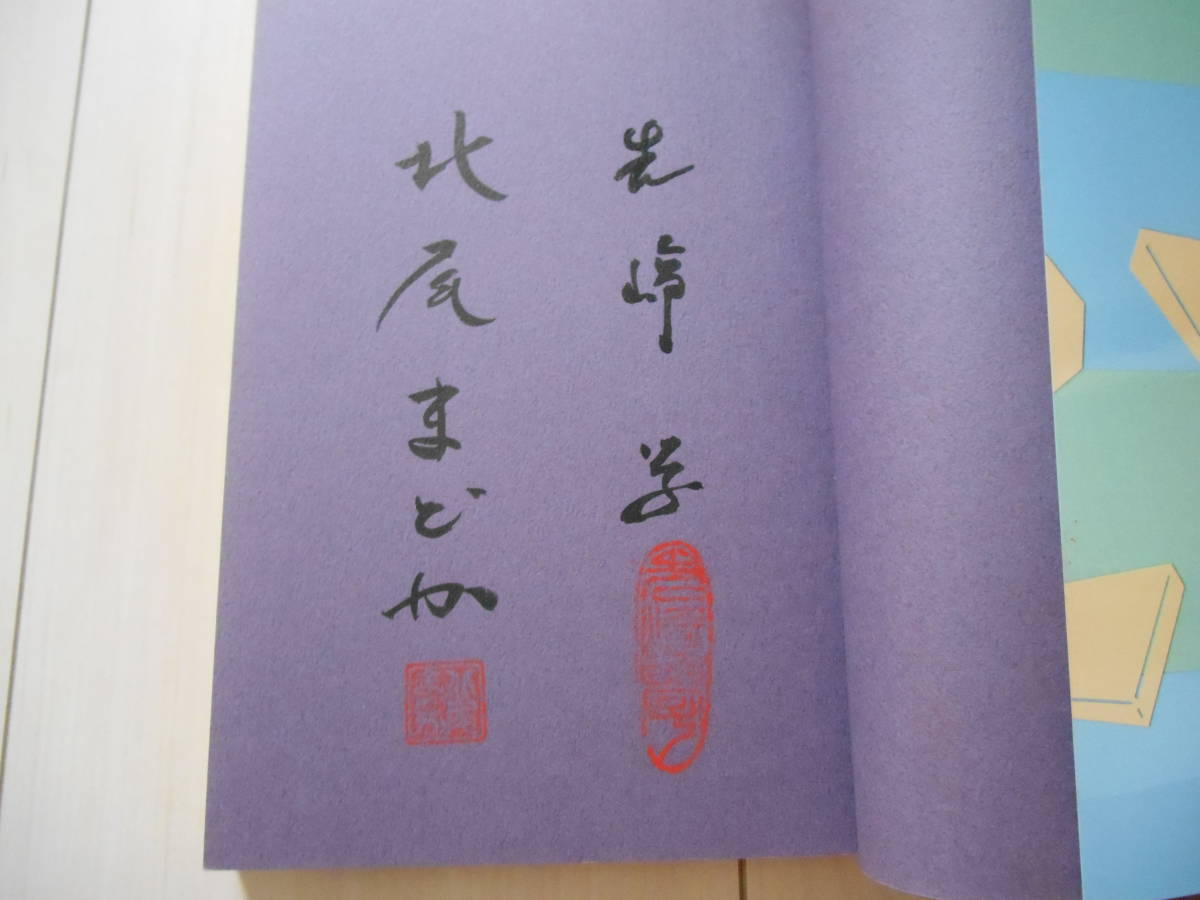 先崎学
北尾まどか